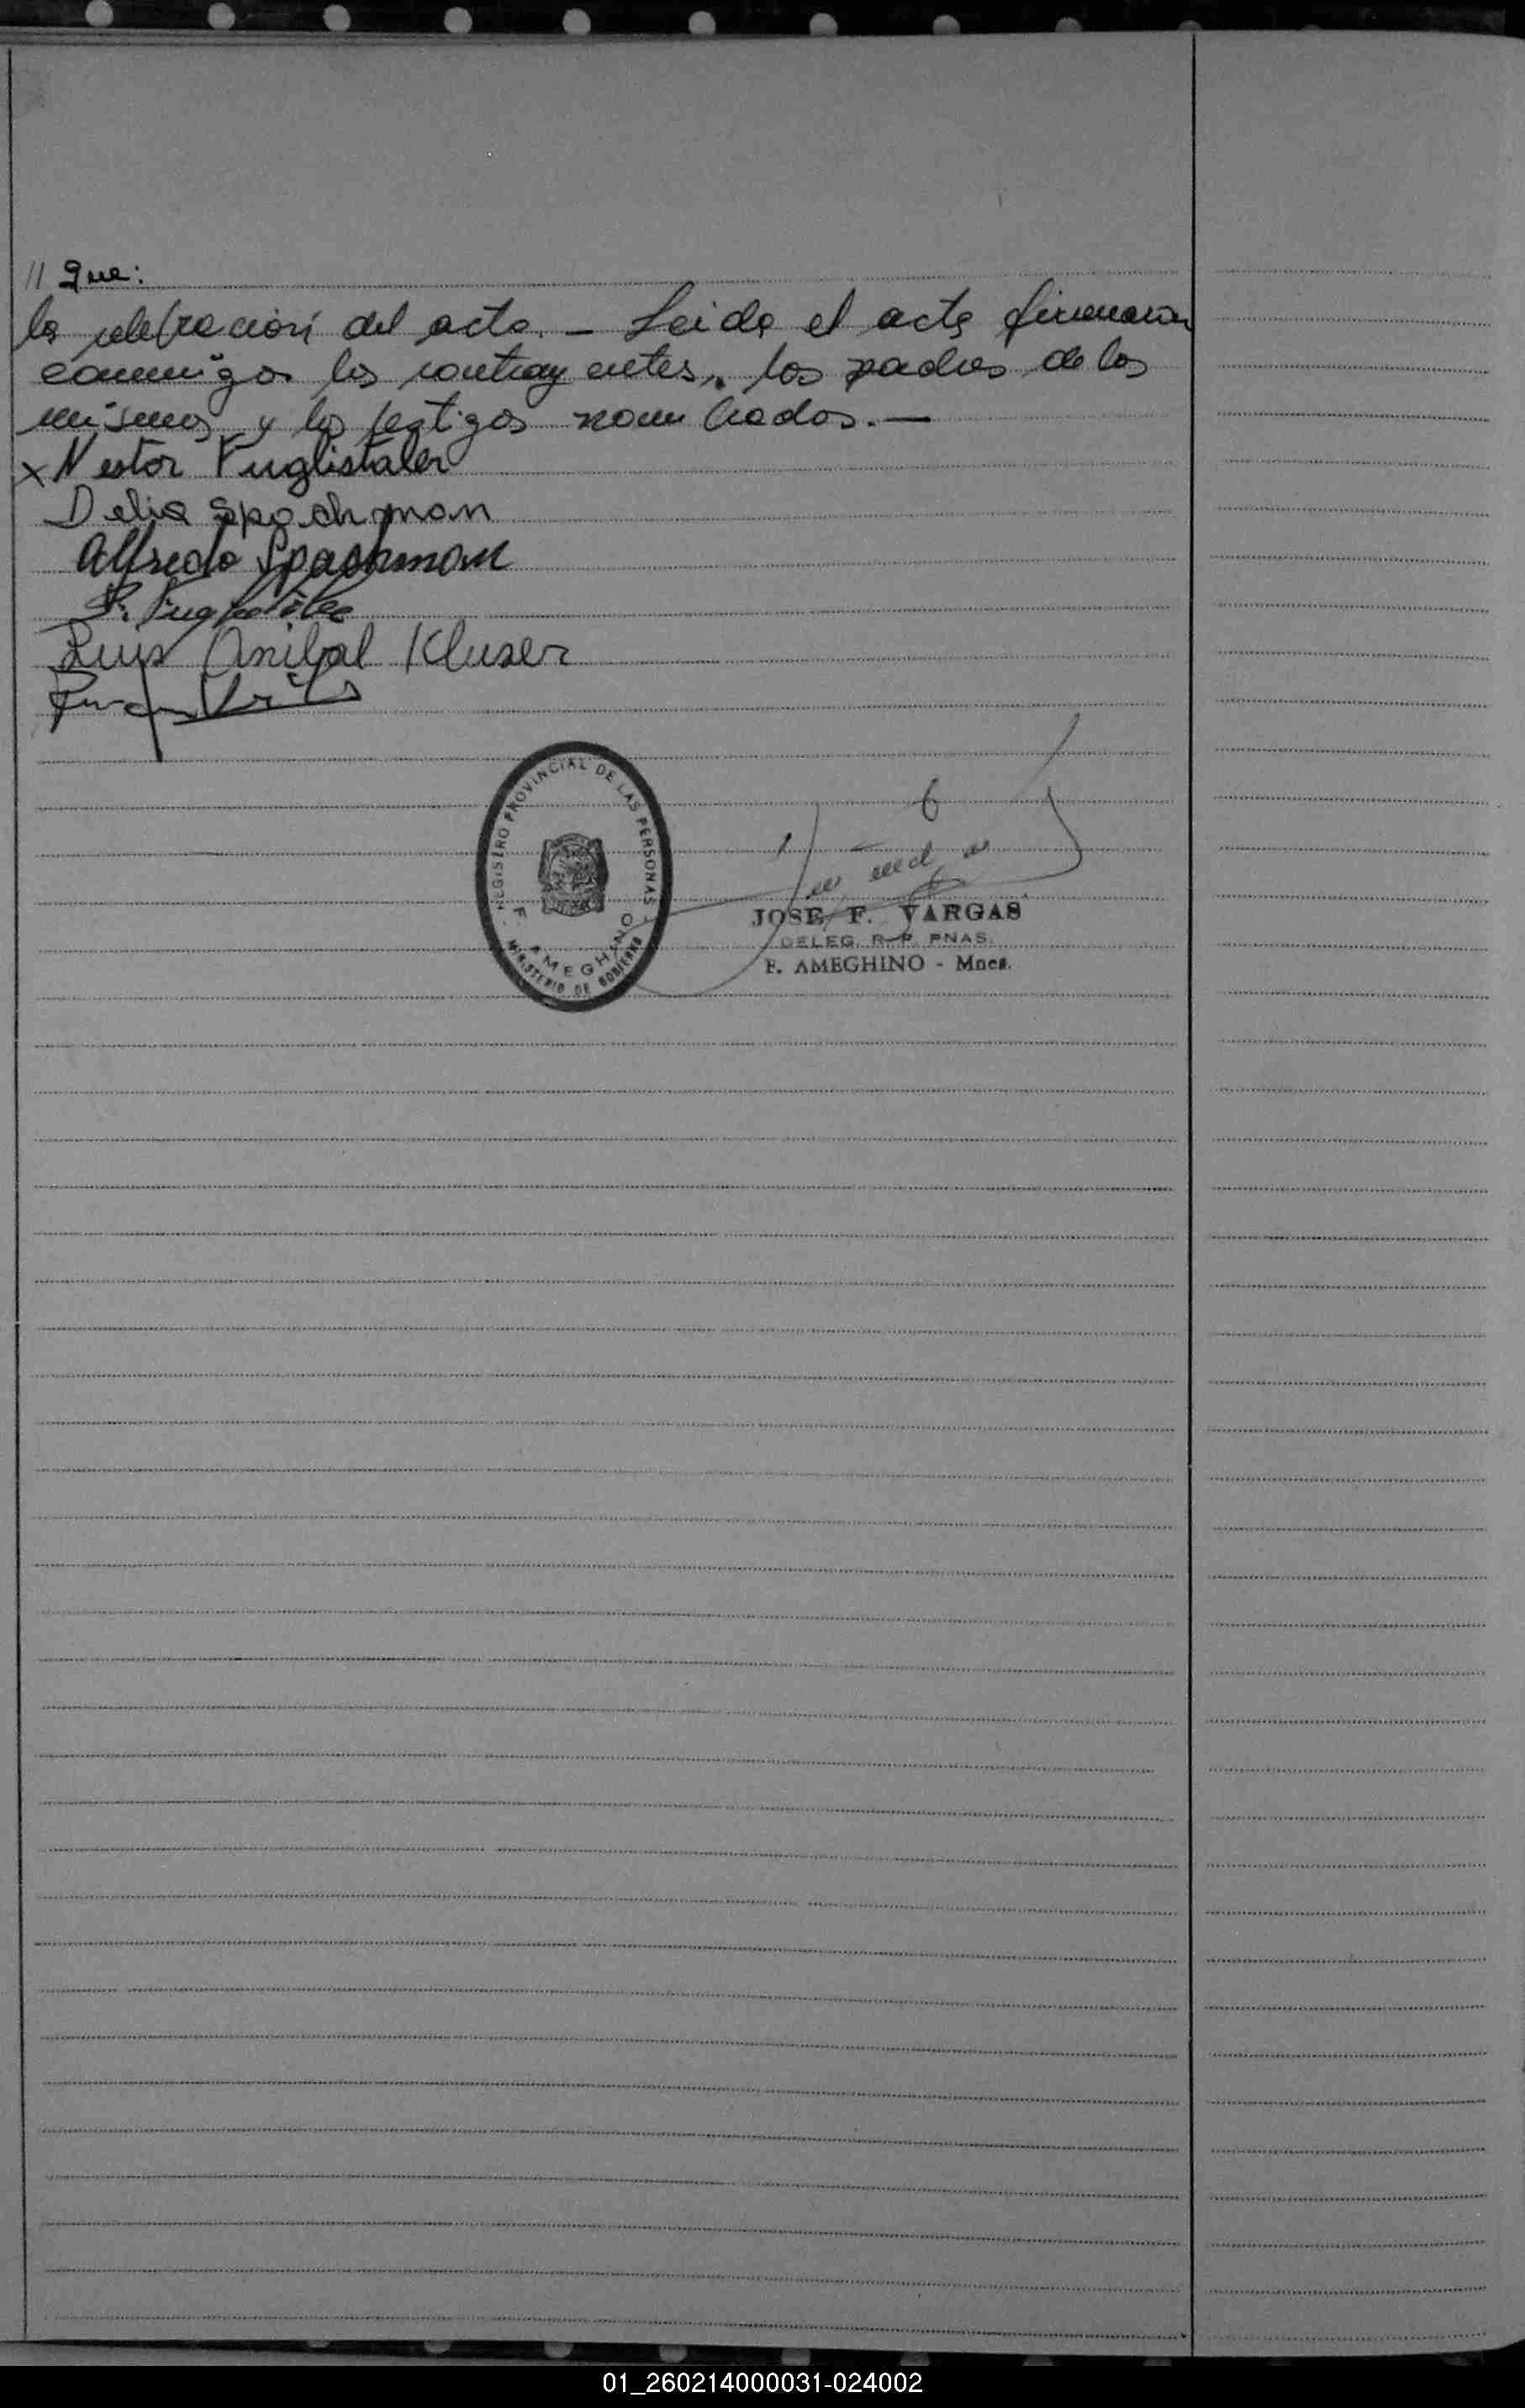 // Que:
la celebración del acto. – Leida el acta firmaron
conmigo los contrayentes, los padres de los
mismos y los testigos nombrados. –
x Nestor Fuglistaler
Delia Spachman
Alfredo Spachman
Luis Anibal Kluser
Juan
REGISTRO PROVINCIAL DE LAS PERSONAS
F. AMEGHINO
MINISTERIO DE GOBIERNO
JOSE F. VARGAS
DELEG. R. P. PNAS.
F. AMEGHINO - Mnes.
01_260214000031-024002